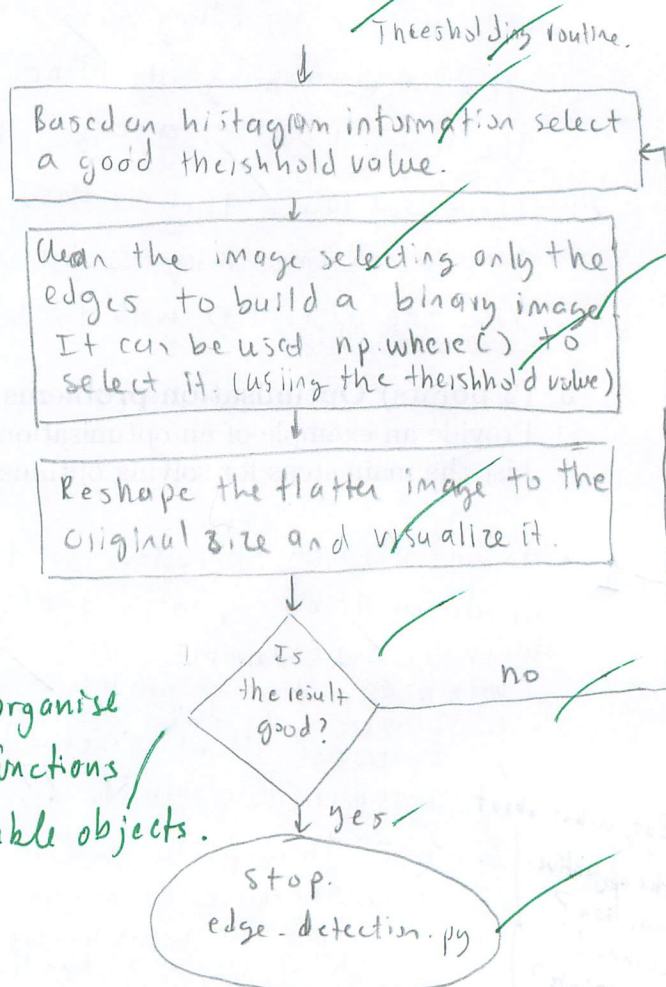 Thresholding routine.
Based on histagram information select
a good theishhold value.
Clean the image selecting only the
edges to build a binary image
It can be used np.where() to
select it. (usiing the theishhold value)
Reshape the flatter image to the
original size and visualize it.
Is
the result
good?
no
organise
functions
able objects.
yes
Stop.
edge_detection.py